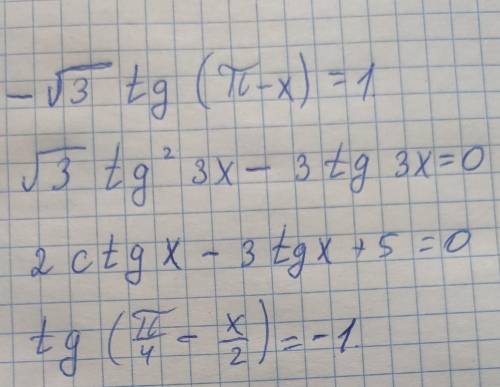 -√3 tg (π-x) = 1
√3 tg² 3x - 3 tg 3x = 0
2 ctg x - 3 tg x + 5 = 0
tg (π/4 - x/2) = -1